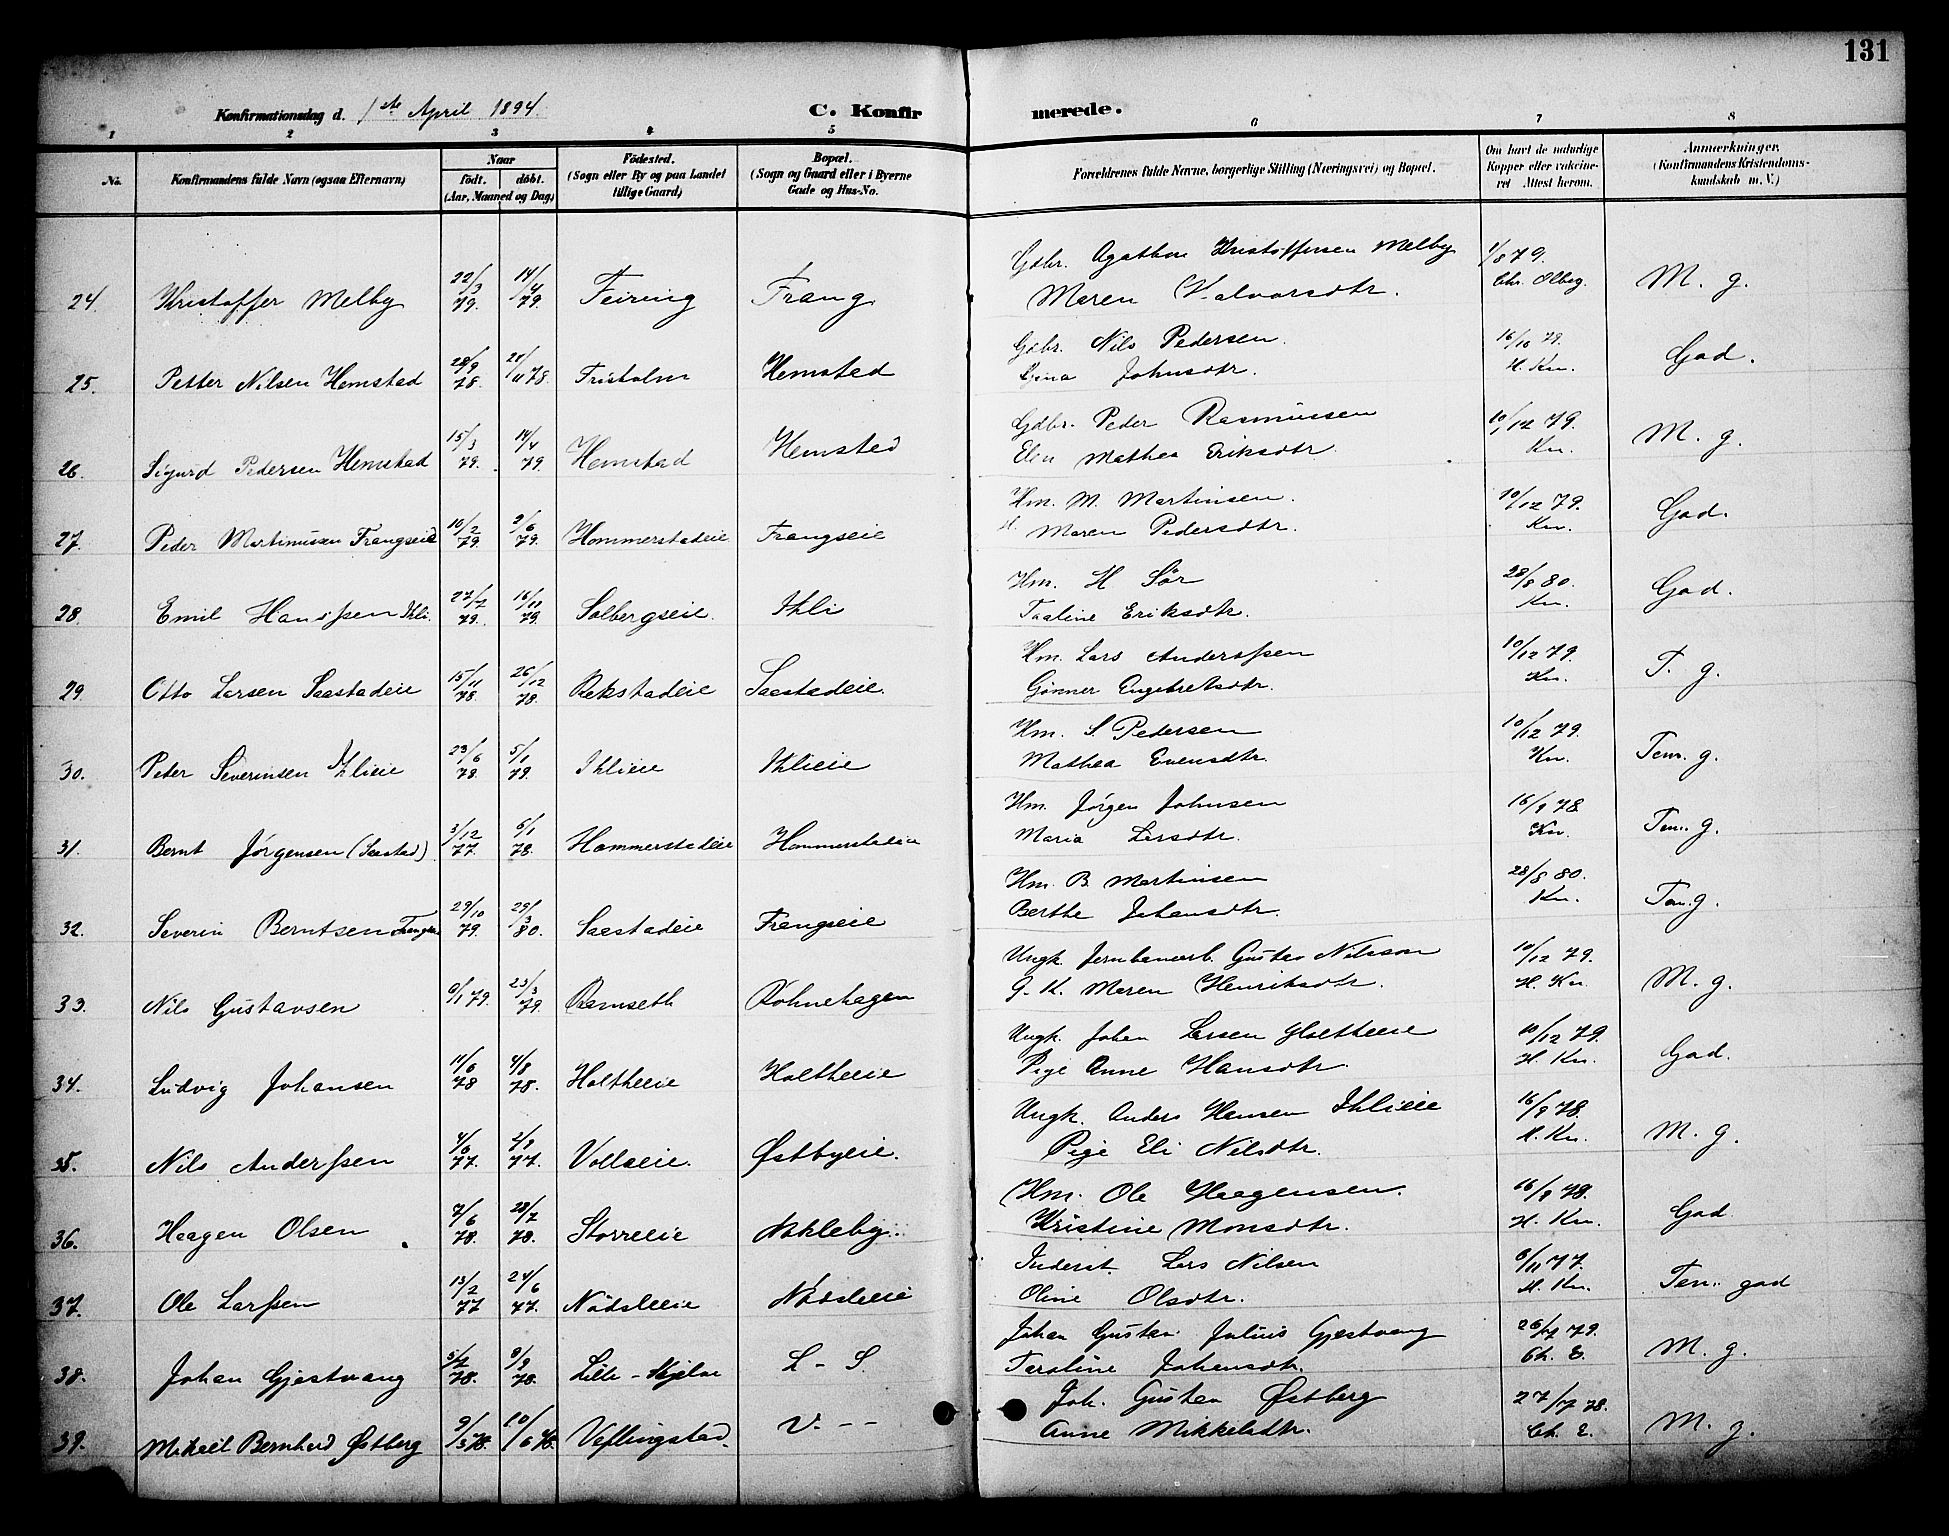 131
Konfirmationsdag d. 1ste April 1894.
C. Konfirmerede.
1 2 3 4 5 6 7 8
No.
Konfirmandens fulde Navn (ogsaa Efternavn)
Naar
födt. döbt.
(Aar, Maaned og Dag)
Födested.
(Sogn eller By og paa Landet
tillige Gaard)
Bopæl.
(Sogn og Gaard eller i Byerne
Gade og Hus-No.
Forældrenes fulde Navne, borgerlige Stilling (Næringsvei) og Bopæl.
Om havt de naturlige
Kopper eller vakcine-
ret Attest herom.
Anmærkninger.
(Konfirmandens Kristendoms-
kundskab m. V.)
Gdbr. Agathon Kristoffersen Melby 1/8 79.
24. Kristoffer Melby 22/3 79. 14/4 79. Feiring Frang Maren Halvorsdtr. Chr. Olberg. M. g.
Gdbr. Nils Pedersen. 16/10 79.
25. Petter Nilsen Hemstad 28/9 78. /11 78. Frisholm Hemstad Gina Johnsdtr. H. Kn. God.
Gdbr. Peder Rasmussen 10/12 79.
26. Sigurd Pedersen Hemstad 15/3 79. 14/4 79. Hemstad Hemstad Elen Mathea Eriksdtr. Kn. M. g.
Hm. M. Martinsen. 10/12 79.
27. Peder Martinussen Frangseie 10/2 79. 2/6 79. Hommerstadeie Frangseie Maren Pedersdtr. Kn. God.
Hm. H Sör 28/8 80.
28. Emil Hansssen Ihli. 27/7 79. 16/11 79. Solbergseie. Ihli Taaline Eriksdtr. Kn. God.
Hm. Lars Anderssen 10/12 79.
29. Otto Larsen Saastadeie 15/11 78. 26/12 78. Rekstadeie Saastadeie. Gönner Engebretsdtr. Kn. T. g.
Hm. S. Pedersen 10/12 79.
30. Peder Severinsen Ihlieie 23/6 78. 5/1 79. Ihlieie Ihlieie Mathea Evensdtr. Kn. Tem. g.
Hm. Jörgen Johnsen 16/9 78
31. Bernt Jörgensen (Saastad) 3/12 77. 6/1 78. Hammerstadeie Hommerstadeie Maria Larsdtr. Kn. Tem. g.
Hm. B. Martinsen 28/8 80.
32. Severin Berntsen 29/10 79. 29/3 80. Saastadeie Frangseie Berthe Johansdtr. Kn. Tem. g.
Ungk. Jernbanearb. Gustav Nilsson 10/12 79.
33. Nils Gustavsen 6/1 79. 23/3 79. Ramseth Röhnehagen G. K. Maren Henriksdtr. H. Kn. M. g.
Ungk. Johan Larsen Holtheeie 10/12 79.
34. Ludvig Johansen 11/6 78 4/8 78. Holtheeie Holtheeie Pige Anne Hansdtr. H. Kn. God.
Ungk. Anders Hansen Ihlieie 16/9 78.
35. Nils Anderssen 4/6 77. 2/9 77. Vollaeie. Østbyeie. Pige Eli Nilsdtr. H. Kn. M. g.
Hm. Ole Haagensen. 16/9 78.
36. Haagen Olsen 7/6 78. 28/7 78. Storreeie Nokleby. Kristine Monsdtr. H. Kn. God
Inderst. Lars Nilsen 6/11 77.
37. Ole Larssen 13/2 77 24/6 77. Nödsleeie Nödsleeie Oline Olsdtr. H. Kn. Tem. god
Johan Gustav Julius Gjestvang 26/7 79.
38. Johan Gjestvang 5/7 78. 8/9 78. Lille-Hjelm L - S Taroline Johansdtr. Ch. E. M. g.
Joh. Gustav Østberg 27/7 78.
39. Mikael Bernhard Østberg 9/3 78. 10/6 78. Veflingstad. V. - - Anne Mikkelsdtr. Ch. E. M. g.